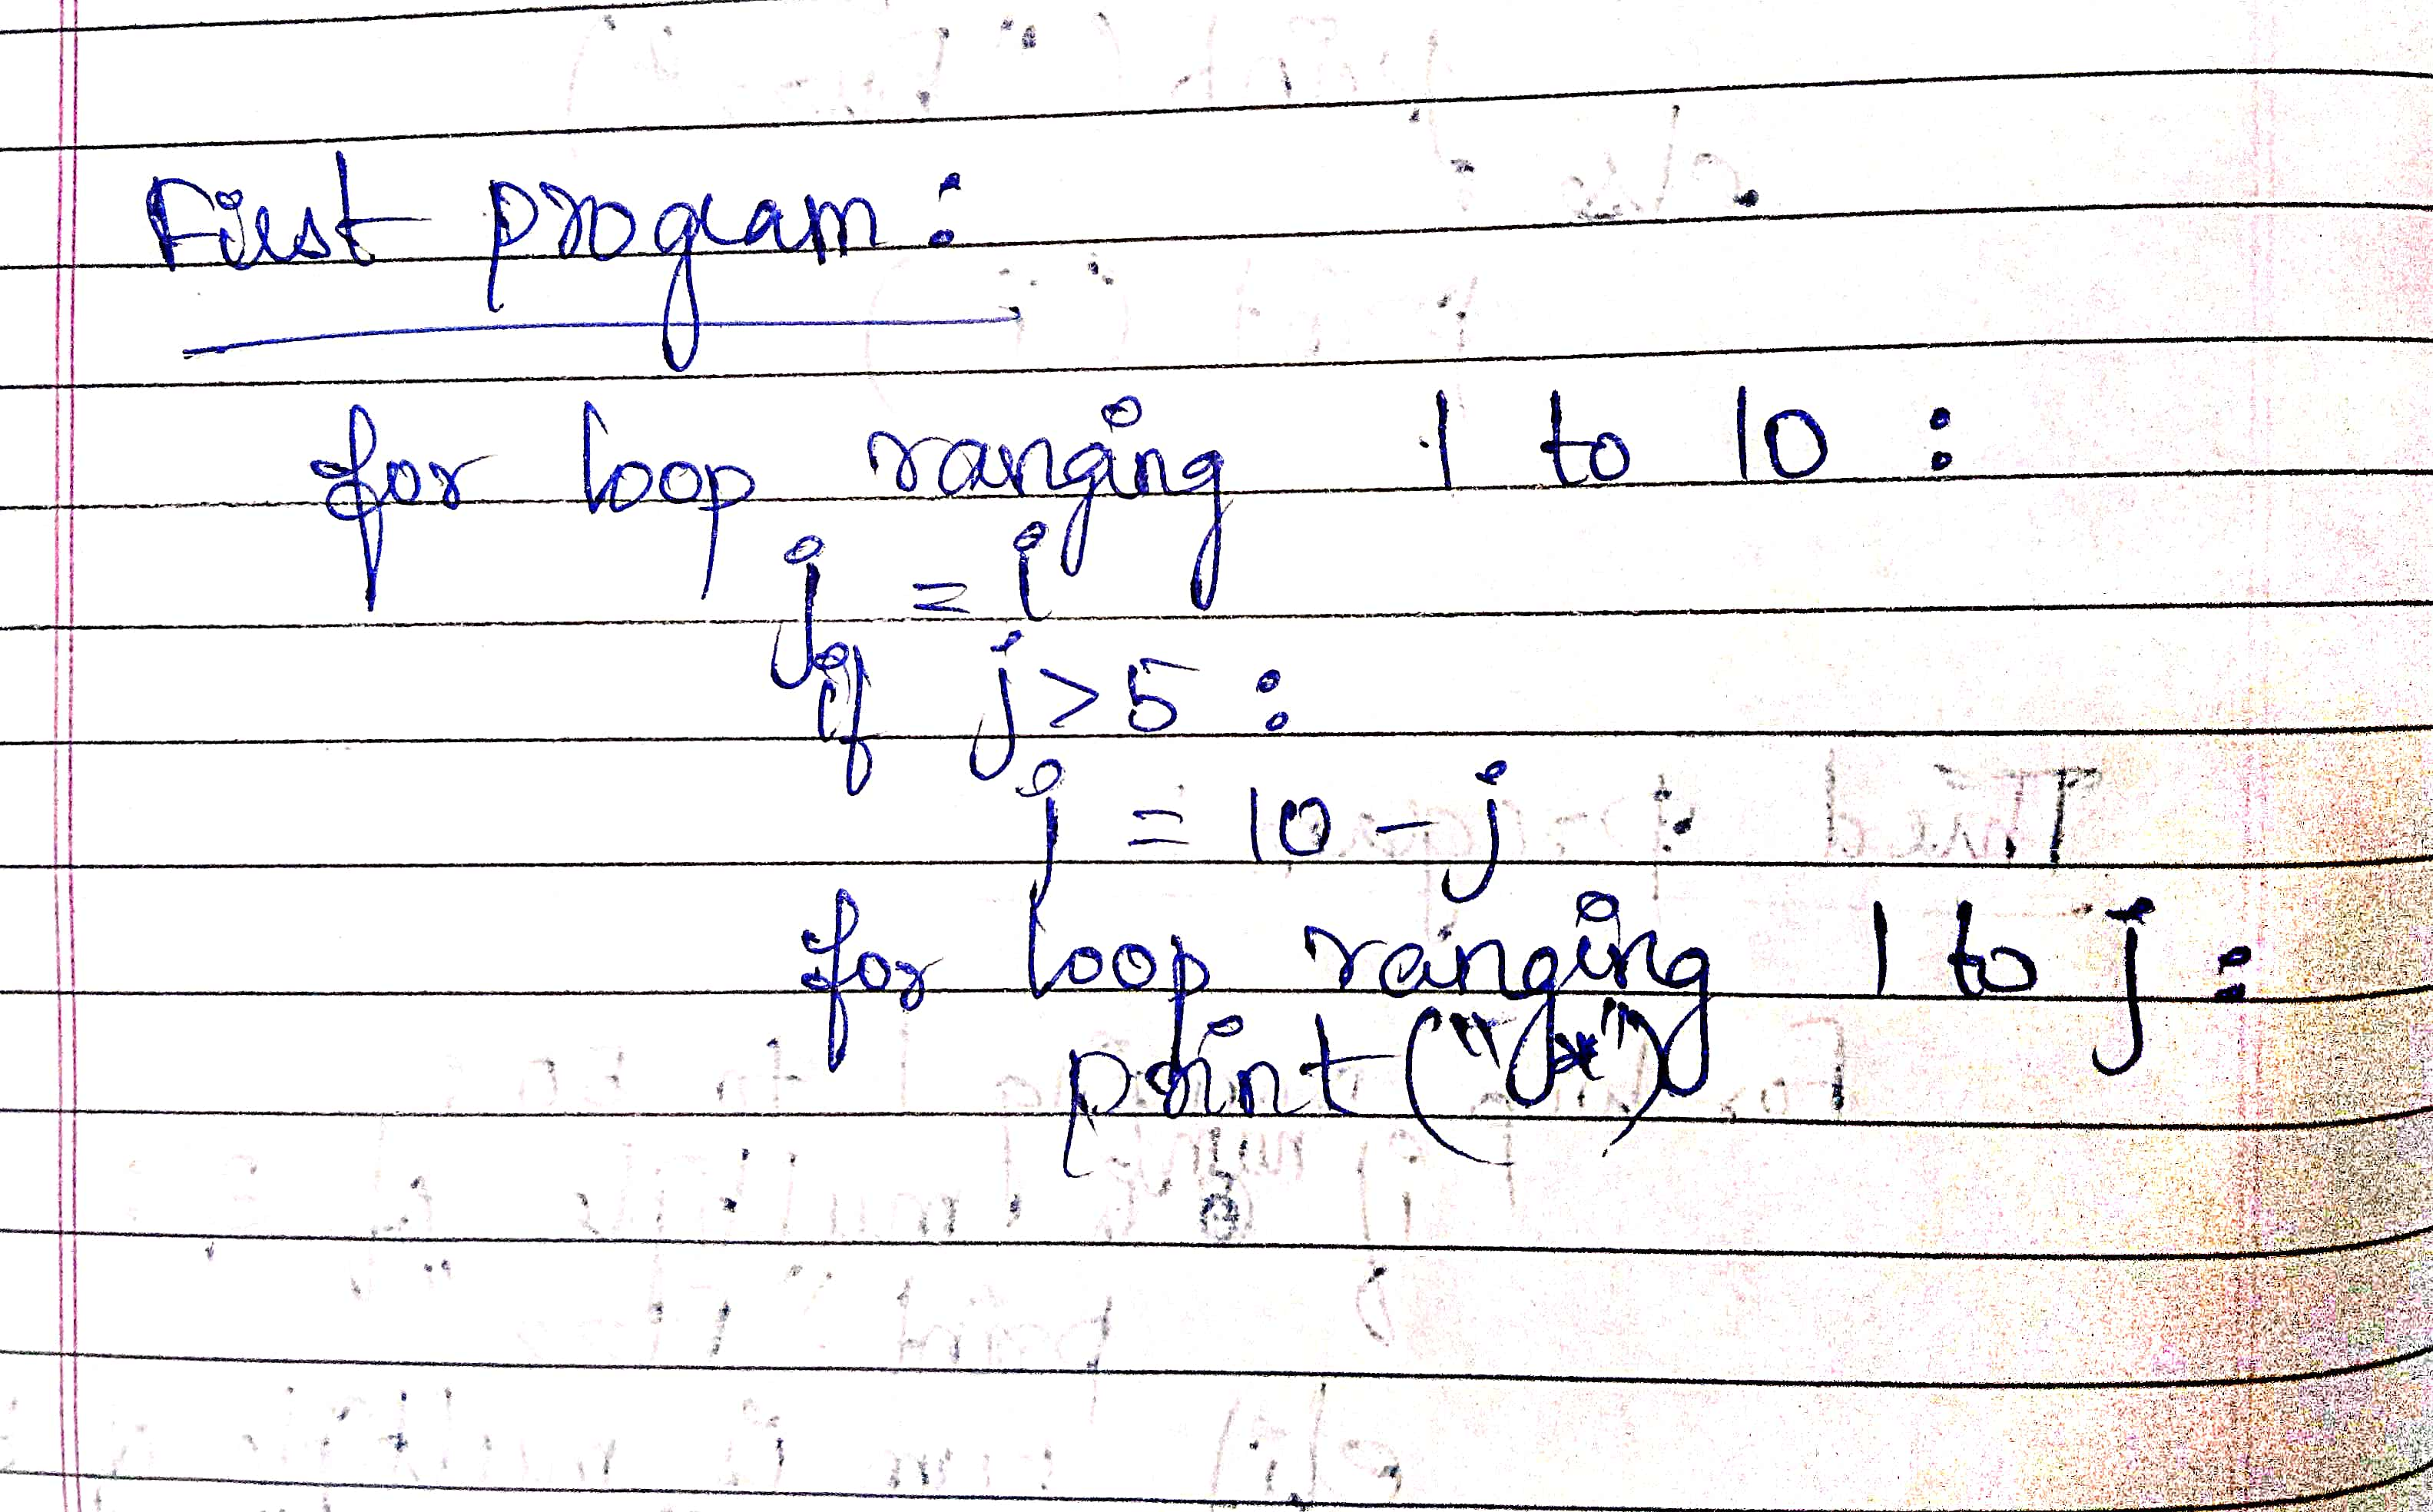 First program:
for loop ranging 1 to 10 :
j = i
if j>5 :
j = 10 - j
for loop ranging 1 to j :
print ("*")